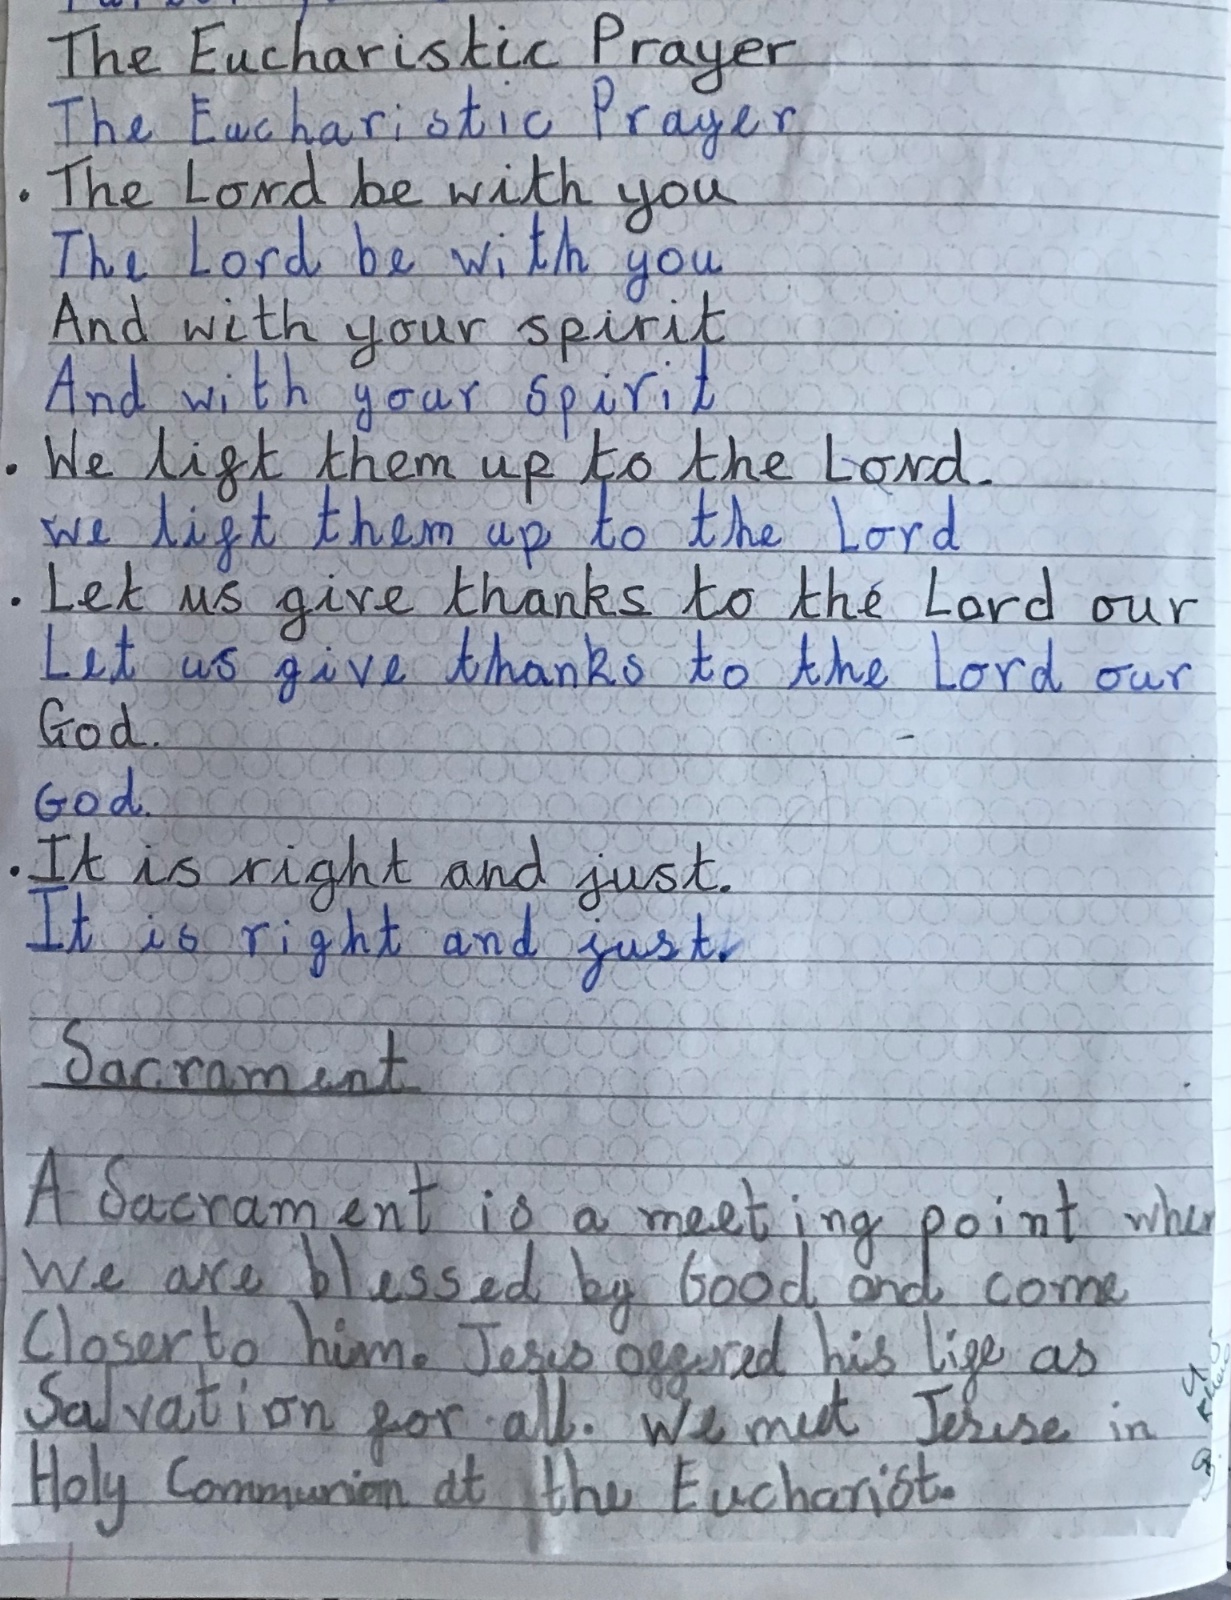 The Eucharistic Prayer
The Eucharistic Prayer
. The Lord be with you
The Lord be with you
And with your spirit
And with your spirit
. We lift them up to the Lord.
we lift them up to the Lord
. Let us give thanks to the Lord our
Let us give thanks to the Lord our
God.
God.
. It is right and just.
It is right and just.
Sacrament
A Sacrament is a meeting point
We are blessed by Good and come
Closer to him. Jesus offered his life as
Salvation for all. We meet Jesuse in
Holy Communion at the Eucharist.